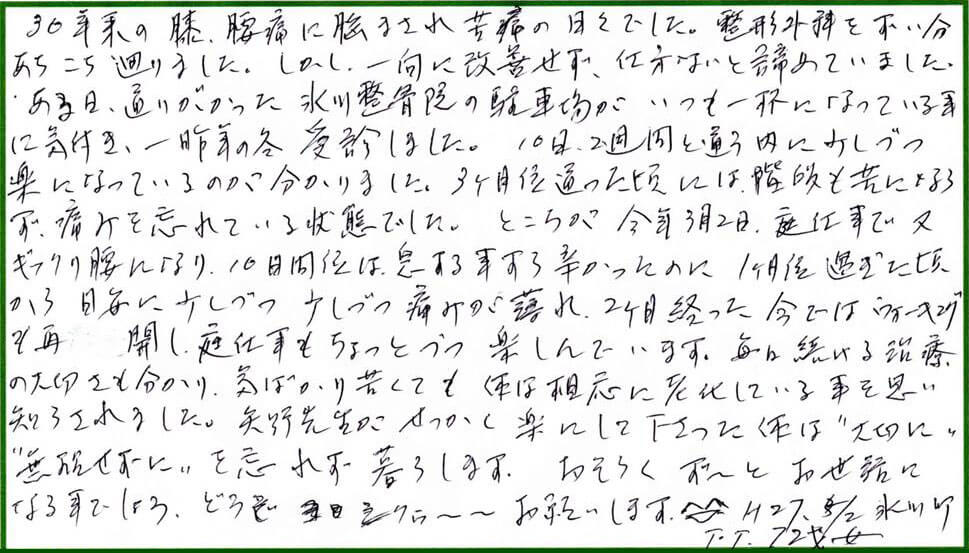 30年来の膝、腰痛に悩まされ苦痛の日々でした。整形外科をずい分
あちこち廻りました。しかし、一向に改善せず、仕方ないと諦めていました。
ある日、通りがかった氷川整骨院の駐車場がいつも一杯になっている事
に気付き、一昨年の冬受診しました。10日、2週間と通う内に少しづつ
楽になっているのが分かりました。3ヶ月位通った頃には、階段も苦になら
ず、痛みを忘れている状態でした。ところが今年3月2日、庭仕事で又
ギックリ腰になり、10日間位は、息する事すら辛かったのに1ヶ月位過ぎた頃
から日毎に少しづつ少しづつ痛みが薄れ、2ヶ月経った今ではウォーキング
も再開し、庭仕事もちょっとづつ楽しんでいます。毎日続ける治療
の大切さも分かり、気ばかり若くても体は相応に老化している事を思い
知らされました。矢野先生がせっかく楽にして下さった体は"大切に"
"無理せずに"を忘れず暮らします。おそらくず〜とお世話に
なる事でしょう、どうぞ 〜〜お願いします。 H27.5/2 氷川町
T.T. 72才 女